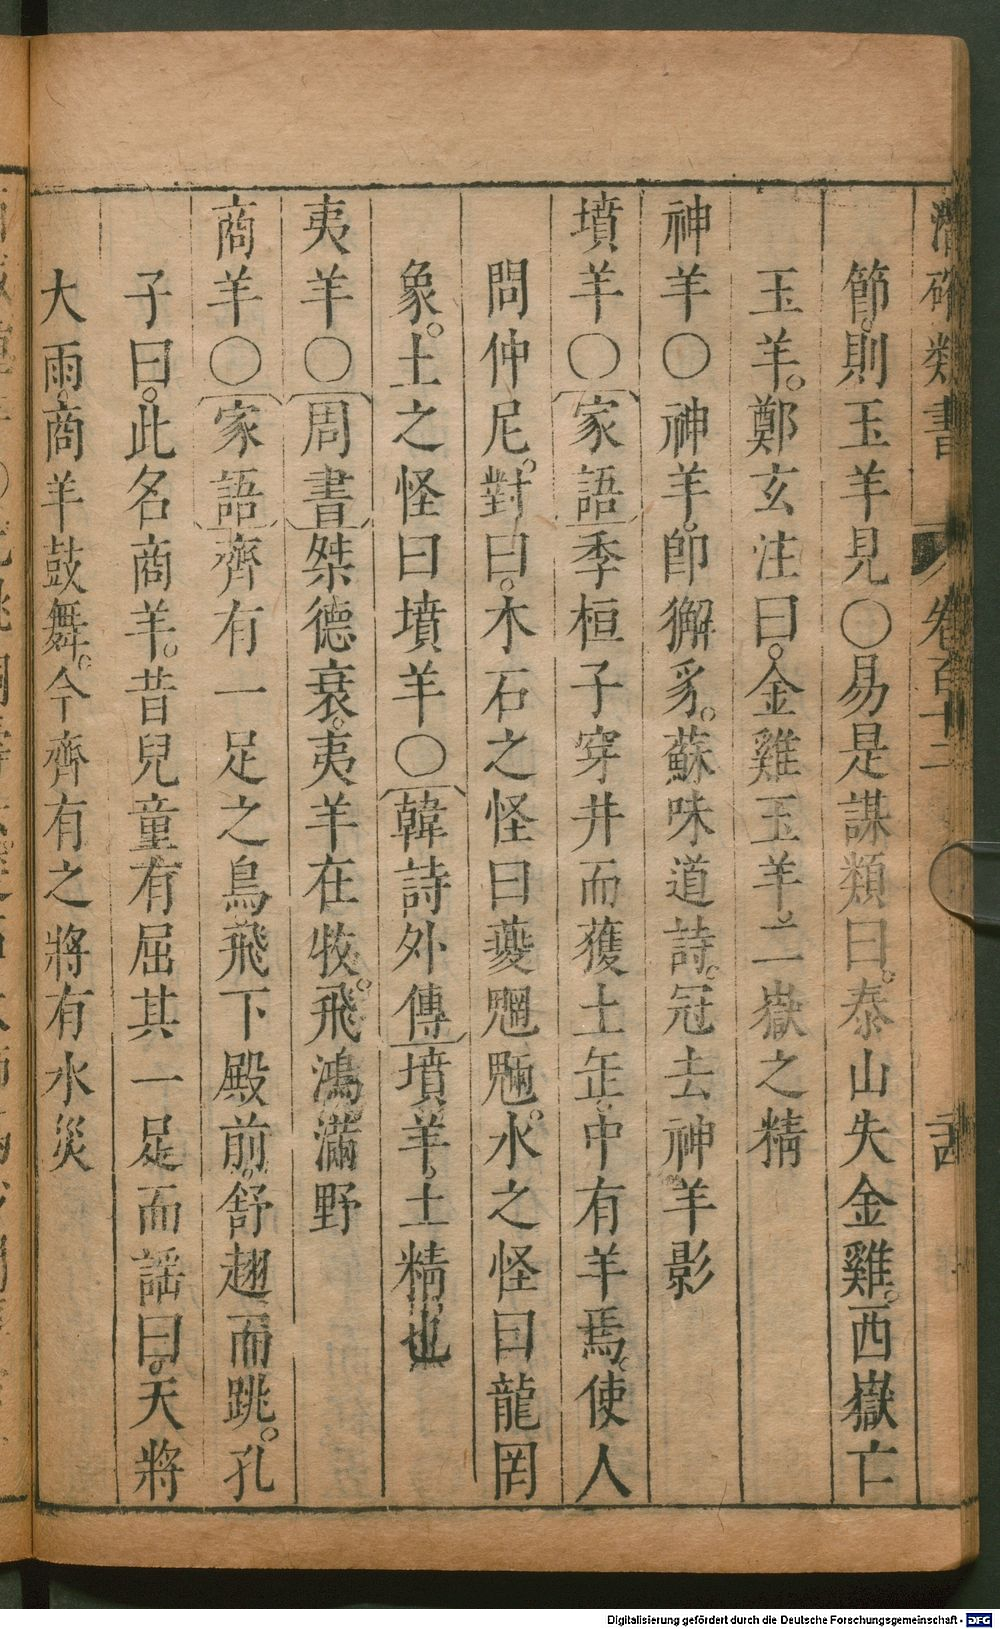 潛確類書 卷百十二
節。則玉羊見〇易是謀類曰。泰山失金雞。西嶽亡
玉羊。鄭玄注曰。金雞玉羊。二嶽之精
神羊〇神羊。卽獬豸。蘇味道詩。冠去神羊影
墳羊〇家語季桓子穿井而獲土缶。中有羊焉。使人
問仲尼。對曰。木石之怪曰夔魍魎。水之怪曰龍罔
象。土之怪曰墳羊〇韓詩外傳墳羊。土精也
夷羊〇周書桀德衰。夷羊在牧。飛鴻滿野
商羊〇家語齊有一足之鳥飛下殿前。舒趐而跳。孔
子曰。此名商羊。昔兒童有屈其一足而謡曰。天將
大雨。商羊鼓舞。今齊有之將有水災
Digitalisierung gefördert durch die Deutsche Forschungsgemeinschaft - DFG